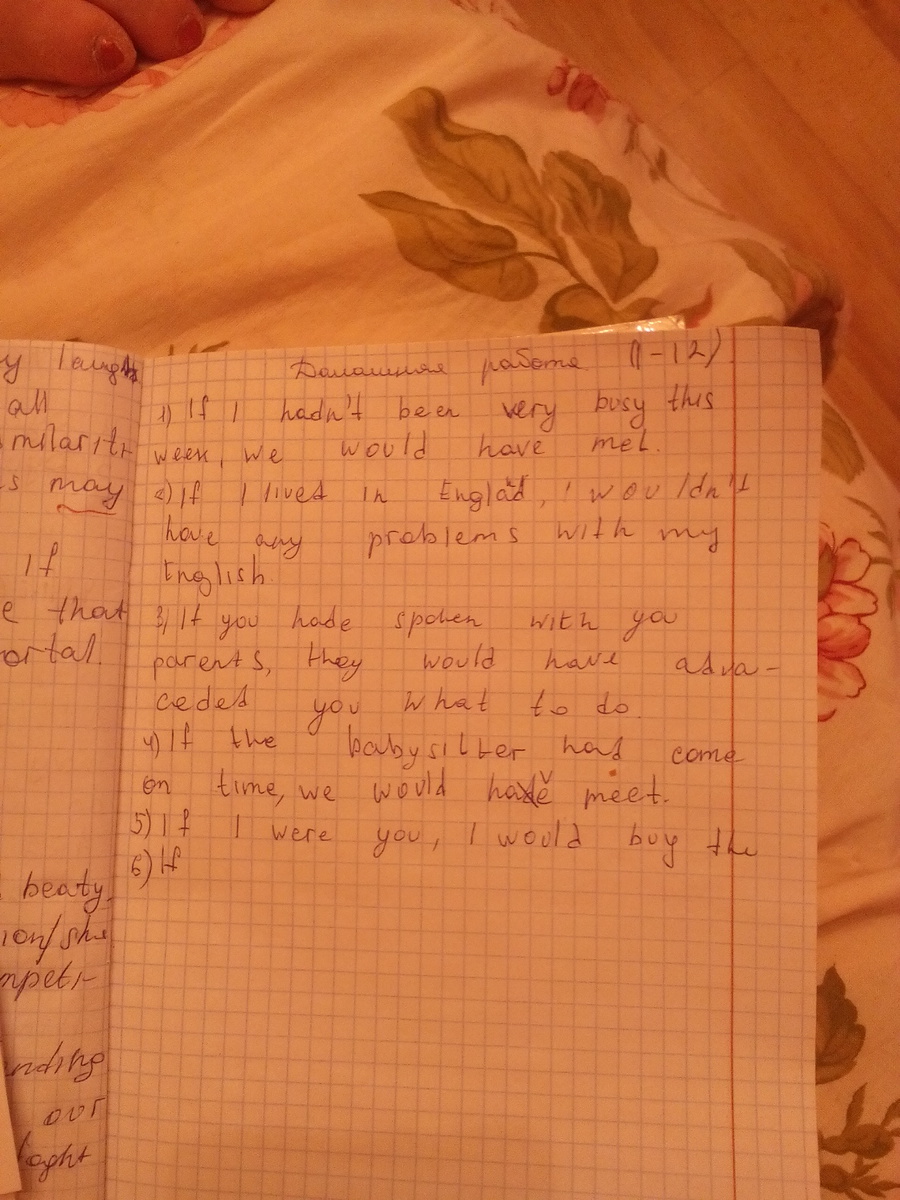 y laugh
all
milarit-
s may
If
e that
ortal.
beaty.
ion/she
mpeti-
nding
our
Домашняя работа. (1-12)
1) If I hadn't been very busy this
week, we would have met.
2) If I lived in England, I wouldn't
have any problems with my
English.
3) If you hade spoken with you
parents, they would have adva-
ceded you what to do.
4) If the babysitter had come
on time, we would have meet.
5) If I were you, I would buy the
6) If